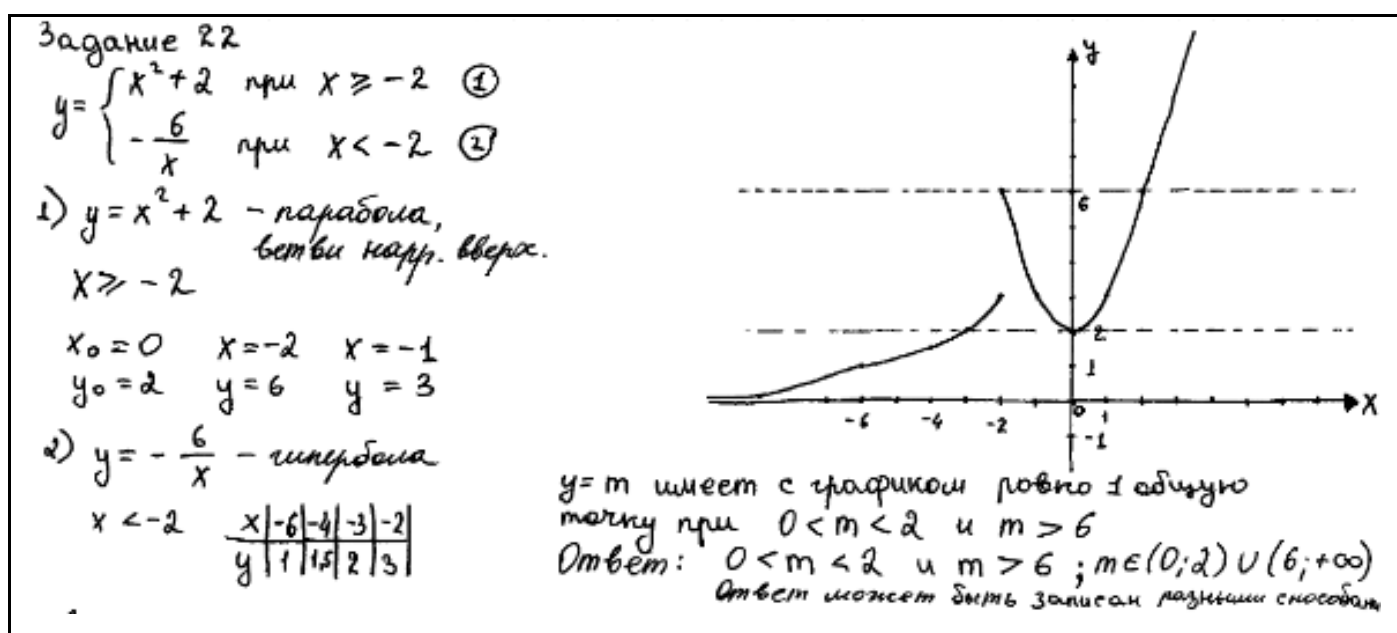 Задание 22
y = { x² + 2 при x ⩾ -2 ①
- 6/x при x < -2 ②
1) y = x² + 2 - парабола,
ветви напр. вверх.
x ⩾ -2
x₀ = 0 x = -2 x = -1
y₀ = 2 y = 6 y = 3
2) y = - 6/x - гипербола
x < -2
x | -6 | -4 | -3 | -2 |
y | 1 | 1,5 | 2 | 3 |
y
6
2
1
-6 -4 -2 0 1 x
-1
y = m имеет с графиком ровно 1 общую
точку при 0 < m < 2 и m > 6
Ответ: 0 < m < 2 и m > 6 ; m ∈ (0; 2) ∪ (6; +∞)
Ответ может быть записан разными способами